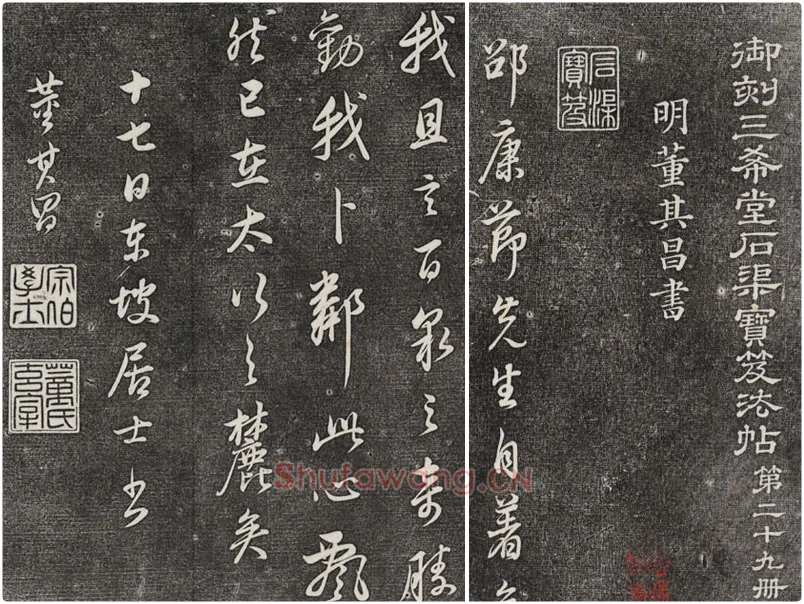 御刻三希堂石渠寶笈法帖 第二十九册
明董其昌書
石渠寶笈
邵康節先生自著
我且言百泉之奇勝
勸我卜鄰此心飄
然已在太行之麓矣
十七日東坡居士書
董其昌
宗伯學士
董氏玄宰
Shufawang.CN